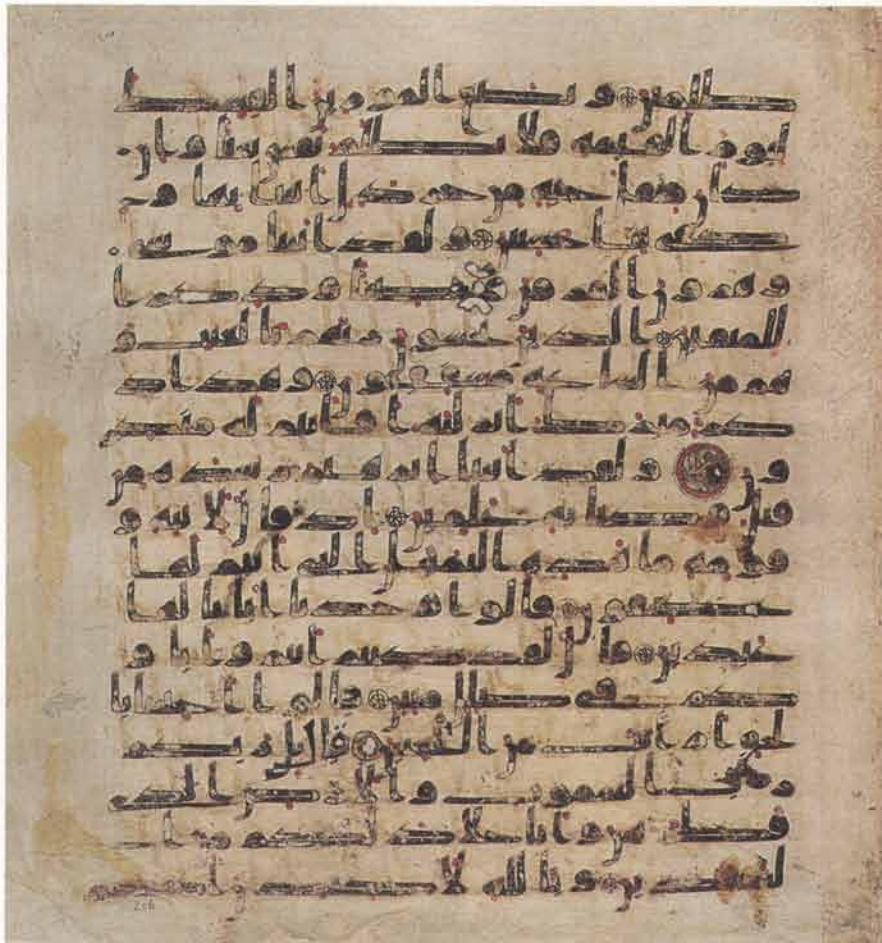 ظلمين و نضع الموزين القسط
ليوم القيمه فلا تظلم نفس شيا و ان
كان مثقال حبه من خردل اتينا بها و
كفى بنا حسبين و لقد اتينا موسى
و هرون الفرقن و ضيا و ذكرا
للمتقين الذين يخشون ربهم بالغيب و
هم من الساعه مشفقون و هذا ذ
كر مبرك انزلنه افانتم له منكر
ون و لقد اتينا ابرهيم رشده من
قبل و كنا به علمين اذ قال لابيه و
قومه ما هذه التماثيل التي انتم لها
عكفون قالوا وجدنا ابانا لها
عبدين قال لقد كنتم انتم و اباو
كم في ضلل مبين قالوا اجئتنا با
لحق ام انت من اللعبين قال بل ربكم
رب السموت و الارض الذي
فطرهن و انا على ذلكم من ا
لشهدين و تالله لاكيدن اصنمكم